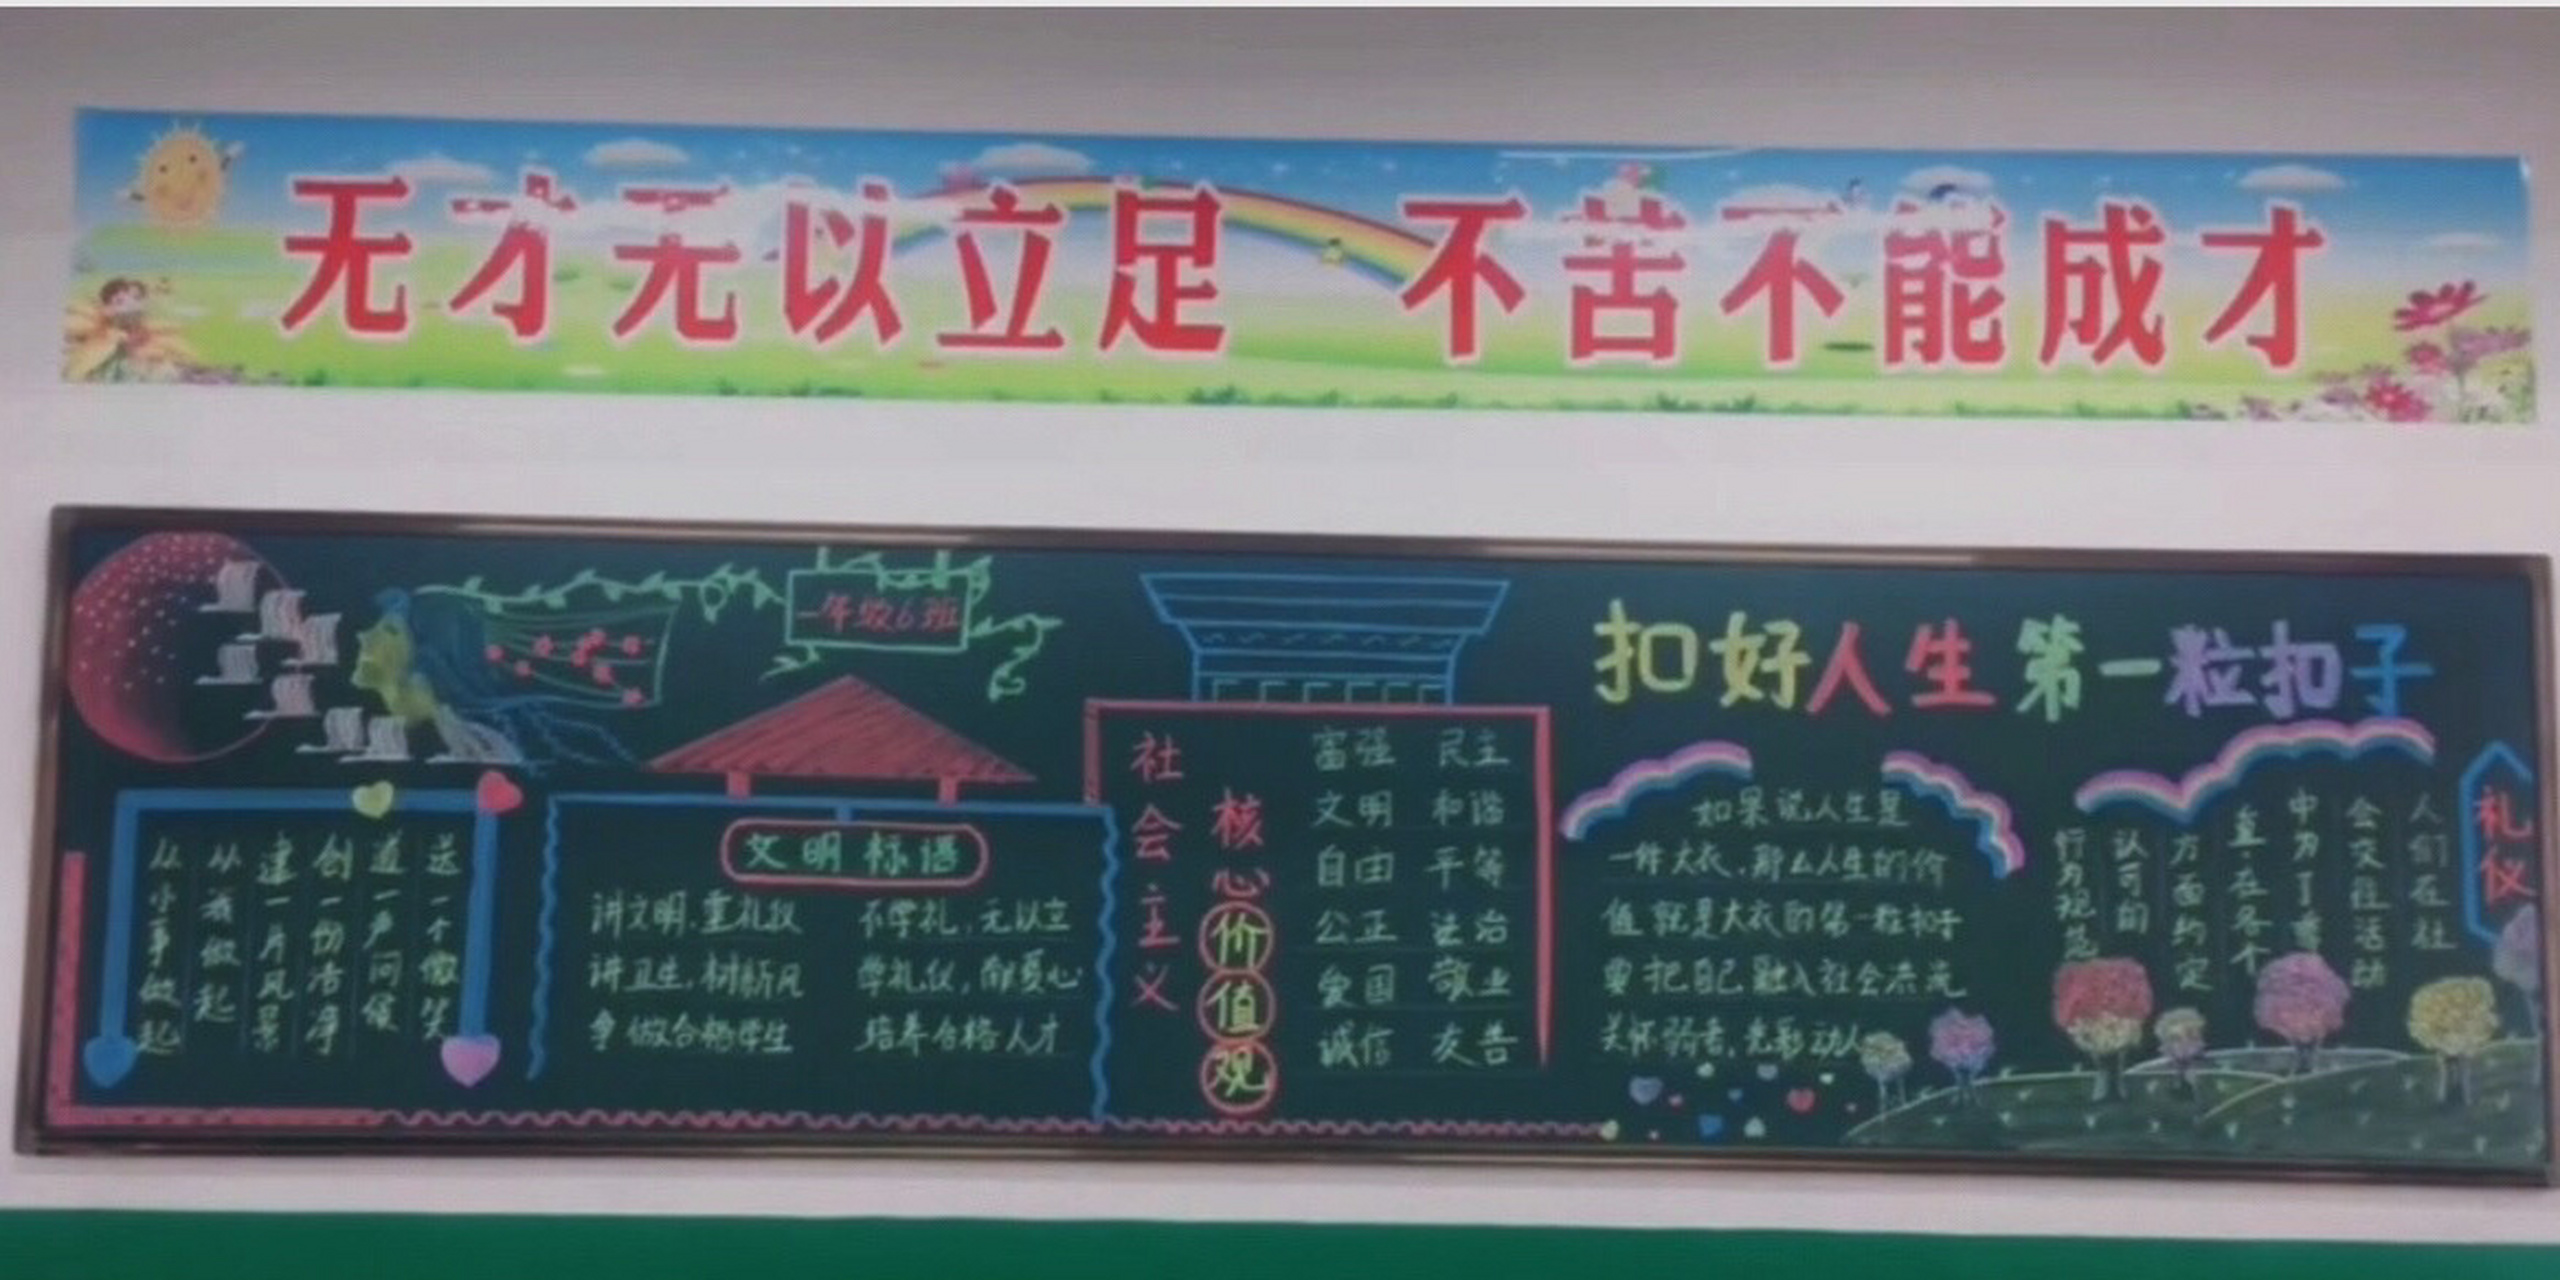 无才无以立足 不苦不能成才
一年级6班
扣好人生第一粒扣子
送一个微笑
道一声问候
创一份洁净
建一片风景
从我做起
从小事做起
文明标语
讲文明.重礼仪
讲卫生.树新风
争做合格学生
不学礼,无以立
学礼仪,献爱心
培养合格人才
社会主义
核心价值观
富强 民主
文明 和谐
自由 平等
公正 法治
爱国 敬业
诚信 友善
如果说人生是
一件大衣.那么人生的价
值就是大衣的第一粒扣子
要把自己融入社会
关怀弱者,光彩动人
礼仪
人们在社
会交往活动
中为了
重.在各个
方面约定
认可的
行为规范